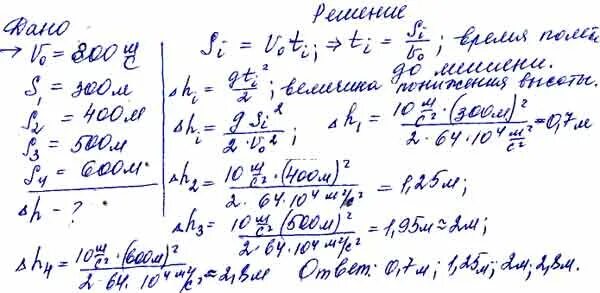 Дано
→ V₀ = 800 м/с
S₁ = 300м
S₂ = 400м
S₃ = 500м
S₄ = 600м.
Δh - ?
Решение
Sᵢ = V₀tᵢ; ⇒ tᵢ = Sᵢ/V₀; время полёта
до мишени.
Δhᵢ = gtᵢ²/2; величина понижения высоты.
Δhᵢ = gSᵢ²/(2·V₀²); Δh₁ = 10 м/с²·(300м)²/(2·64·10⁴ м²/с²) = 0,7м
Δh₂ = 10 м/с²·(400м)²/(2·64·10⁴ м²/с²) = 1,25м;
Δh₃ = 10 м/с²(500м)²/(2·64·10⁴ м²/с²) = 1,95м ≈ 2м;
Δh₄ = 10 м/с²·(600м)²/(2·64·10⁴ м²/с²) ≈ 2,8м Ответ: 0,7м; 1,25м; 2м; 2,8м.